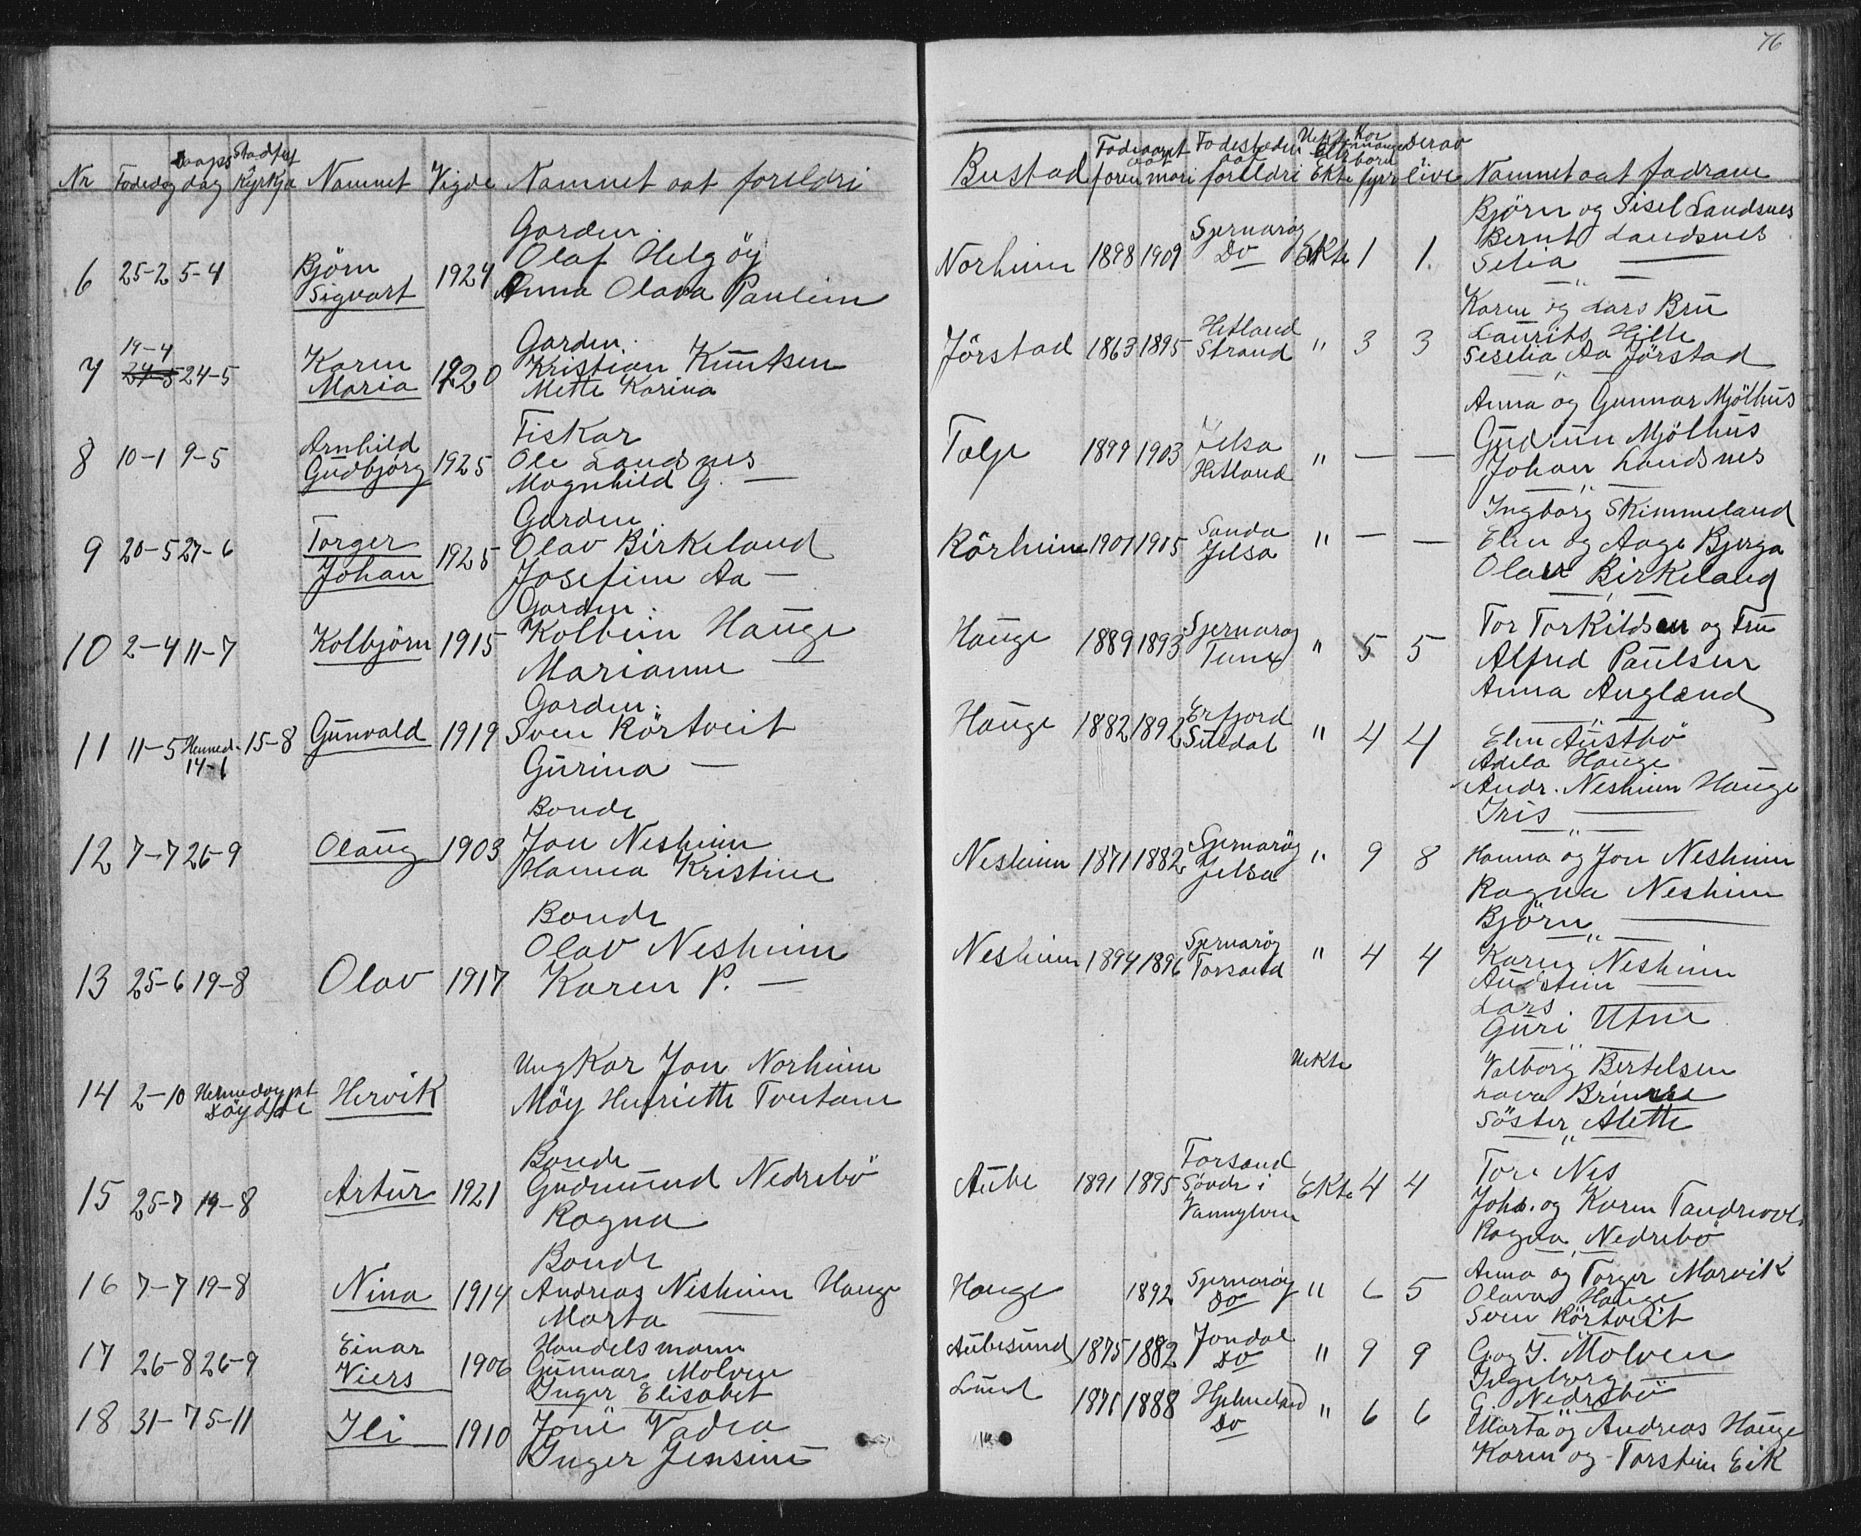 76
Nr Fodedag Daapsdag Stadfest Kyrkja Namnet Vigde Namnet aat foreldri
Bustad Fodeaaret aat foren mori Fodestaden aat foreldri Uekte Ekte Kor mange born fyrr Derav live Namnet aat fadrane
6 25-2 5-4 Björn Sigvart 1924
Garden:
Olaf Helgöy
Anna Olava Paulin
Norheim 1898 1909 Sjernaröy Do Ekte 1 1
Björn og Sisel Landsnes
Bernt Landsnes
Selia —
7 19-4 24-5 24-5 Karen Maria 1920
Garden:
Kristian Knutsen
Mette Karina
Jörstad 1863 1895 Hetland Strand " 3 3
Karen og Lars Bru
Laurits Hille
Seselia Aa Jörstad
8 10-1 9-5 Arnhild Gudbjörg 1925
Fiskar
Ole Landsnes
Magnhild G. —
Talje 1899 1903 Jelsa Hetland " — —
Anna og Gunnar Mjölhus
Gudrun Mjölhus
Johan Landsnes
9 20-5 27-6 Torger Johan 1925
Garden:
Olav Birkeland
Josefine Aa —
Rörheim 1901 1905 Sanda Jelsa " — —
Ingborg Skimmeland
Elen og Aage Bjerga
Olav Birkeland
10 2-4 11-7 Kolbjörn 1915
Garden:
Kolbein Hauge
Marianne —
Hauge 1889 1893 Sjernaröy Tune " 5 5
Tor Torkildsen og Fru
Alfred Paulsen
Anna Augland
11 11-5 Heimed. 14-6 15-8 Gunvald 1919
Garden:
Sven Rörtveit
Gurina —
Hauge 1882 1892 Erfjord Suldal " 4 4
Elen Austbö
Adela Hauge
Andr. Nesheim Hauge
Iris —
12 7-7 26-9 Olaug 1903
Bonde
Jon Nesheim
Hanna Kristine
Nesheim 1871 1882 Sjernaröy Jelsa " 9 8
Hanna og Jon Nesheim
Ragna Nesheim
Björn —
13 25-6 19-8 Olav 1917
Bonde
Olav Nesheim
Karen P. —
Nesheim 1894 1896 Sjernaröy Forsand " 4 4
Karen Nesheim
Audstein —
Lars —
Guri Utne
14 2-10 Heimedöypt Hervik
Ungkar Jon Norheim
Möy Henriette Tveitane
Uekte
Valborg Bertelsen
Lava Brimse
Söster Alette
15 25-7 19-8 Artur 1921
Bonde
Gudmund Nedrebö
Ragna
Aube 1891 1895 Forsand Sövde i Vannylven Ekte 4 4
Tore Nes
Johs. og Karen Tandrevol.
Ragna Nedrebö
16 7-7 19-8 Nina 1914
Bonde
Andreas Nesheim Hauge
Marta —
Hauge 1892 Sjernaröy Do " 6 5
Anna og Torger Marvik
Olava Hauge
Sven Rörtveit
17 26-8 26-9 Einar Viers 1906
Handelsmann
Gunnar Molven
Inger Elisabet
Aubesund 1875 1882 Jondal Do " 9 9
G. og T. Molven
Ingeborg —
G. Nedrebö
18 31-7 5-11 Ili 1910
Jone Vadla
Inger Jensine
Lund 1871 1888 Hjelmeland Do " 6 6
Marta og Andreas Hauge
Karen og Torstein Eik